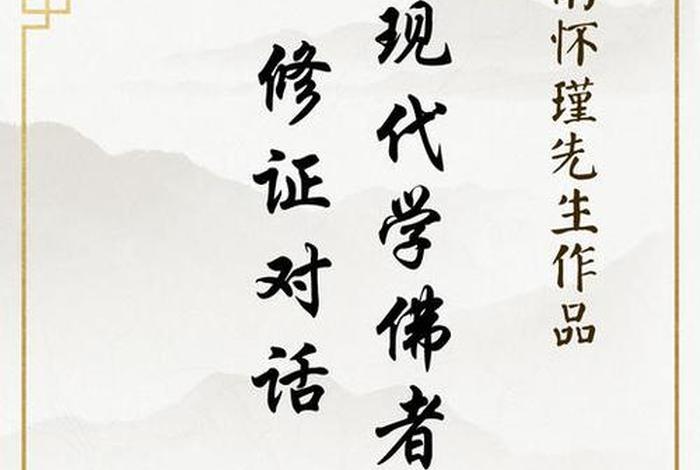 南怀瑾先生作品
现代学佛者
修证对话